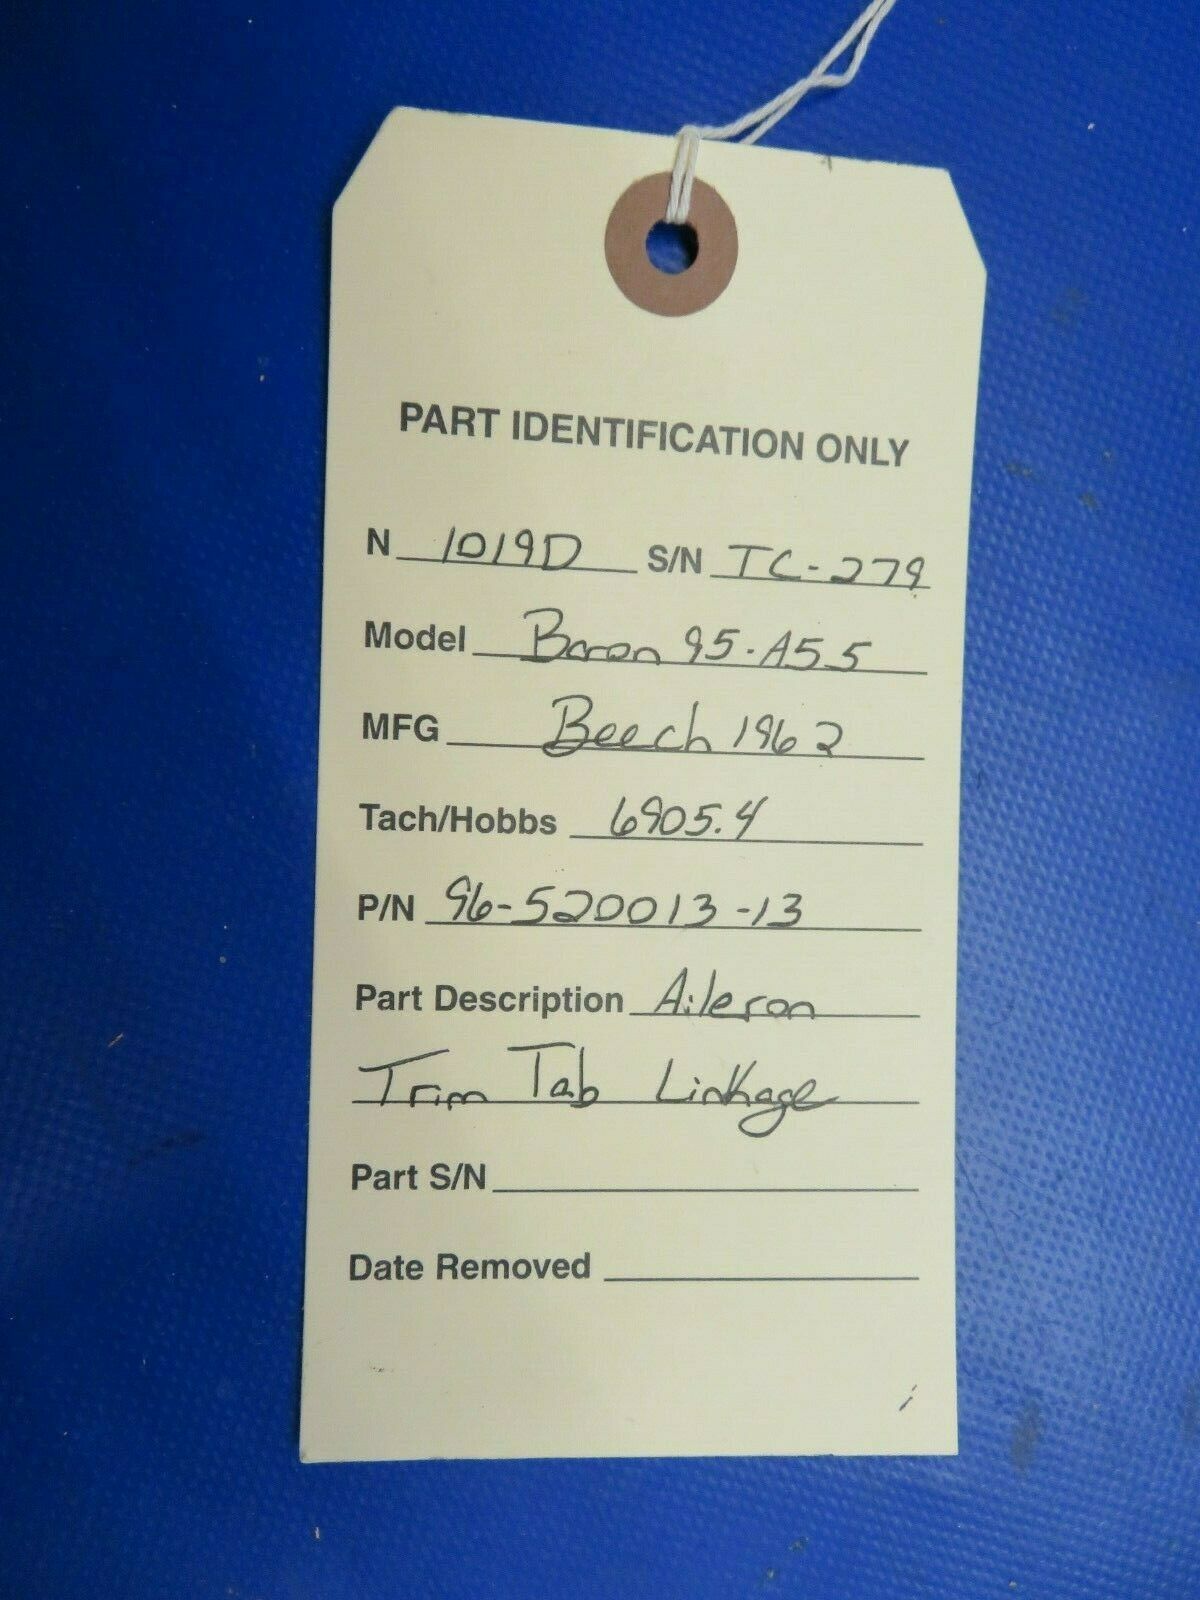 PART IDENTIFICATION ONLY
N 1019D S/N TC-279
Model Baron 95-A55
MFG Beech 1962
Tach/Hobbs 6905.4
P/N 96-520013-13
Part Description Aileron
Trim Tab Linkage
Part S/N
Date Removed